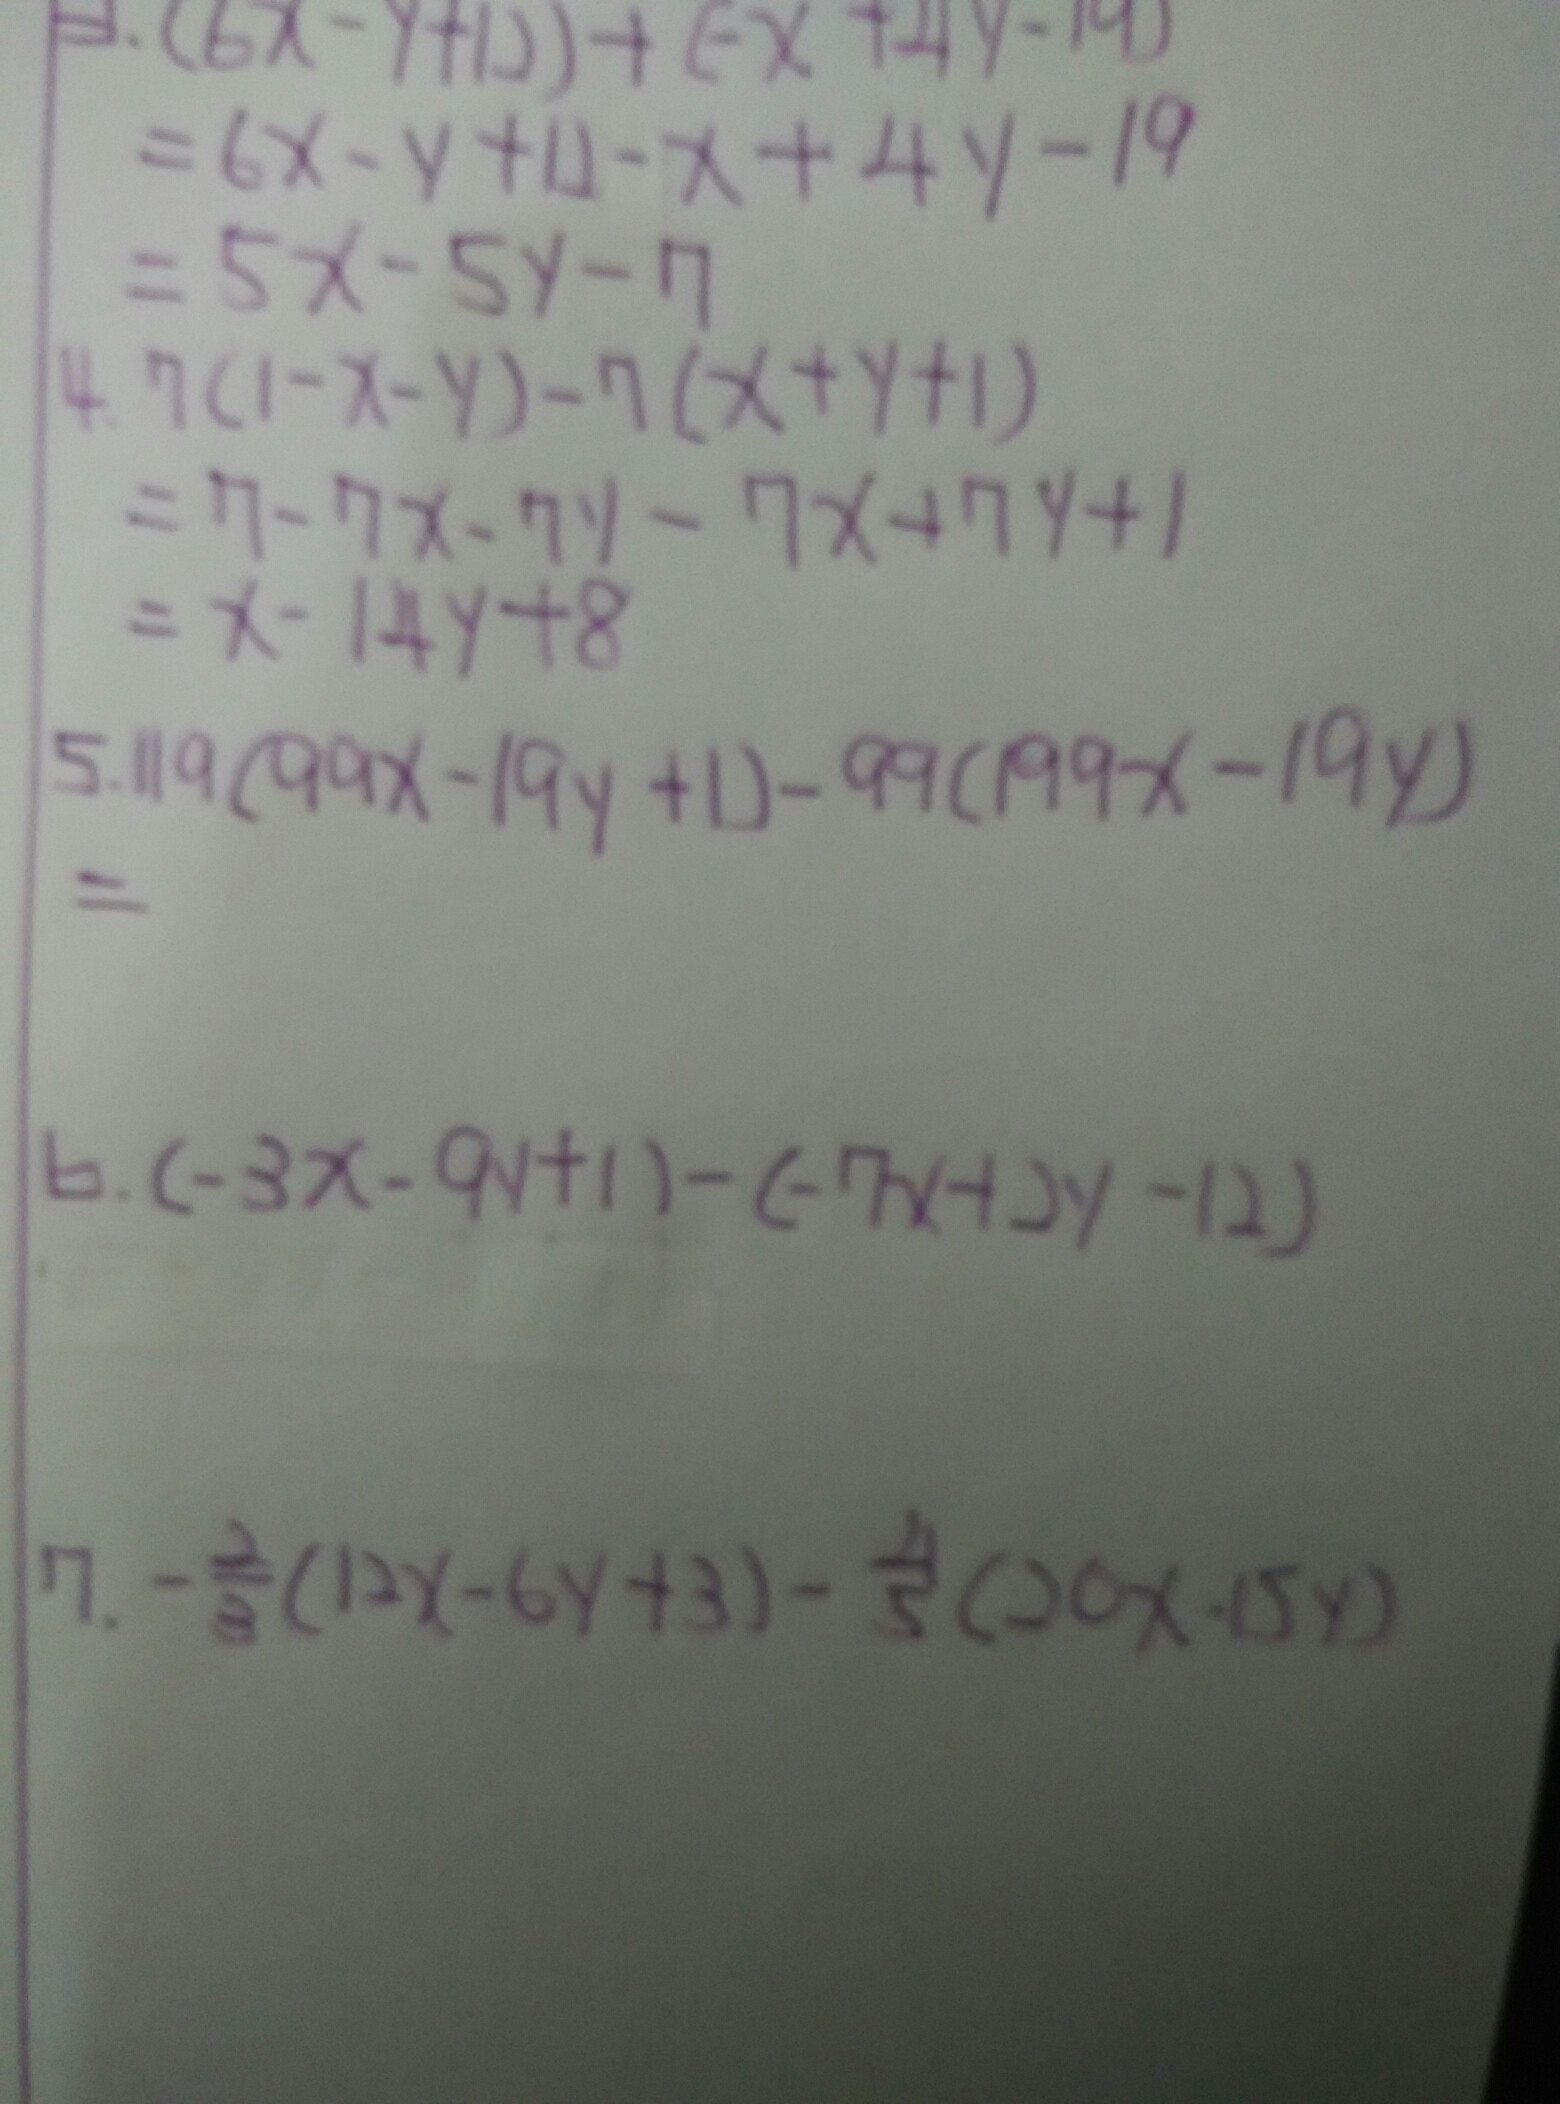 3. (6x-y+12)+(-x+4y-19)
=6x-y+12-x+4y-19
=5x-5y-7
4. 7(1-x-y)-7(x+y+1)
=7-7x-7y-7x+7y+1
=x-14y+8
5. 119(99x-19y+1)-99(199x-19y)
=
6. (-3x-9y+1)-(-7x+2y-12)
7. -2/3(12x-6y+3)-4/5(20x-15y)